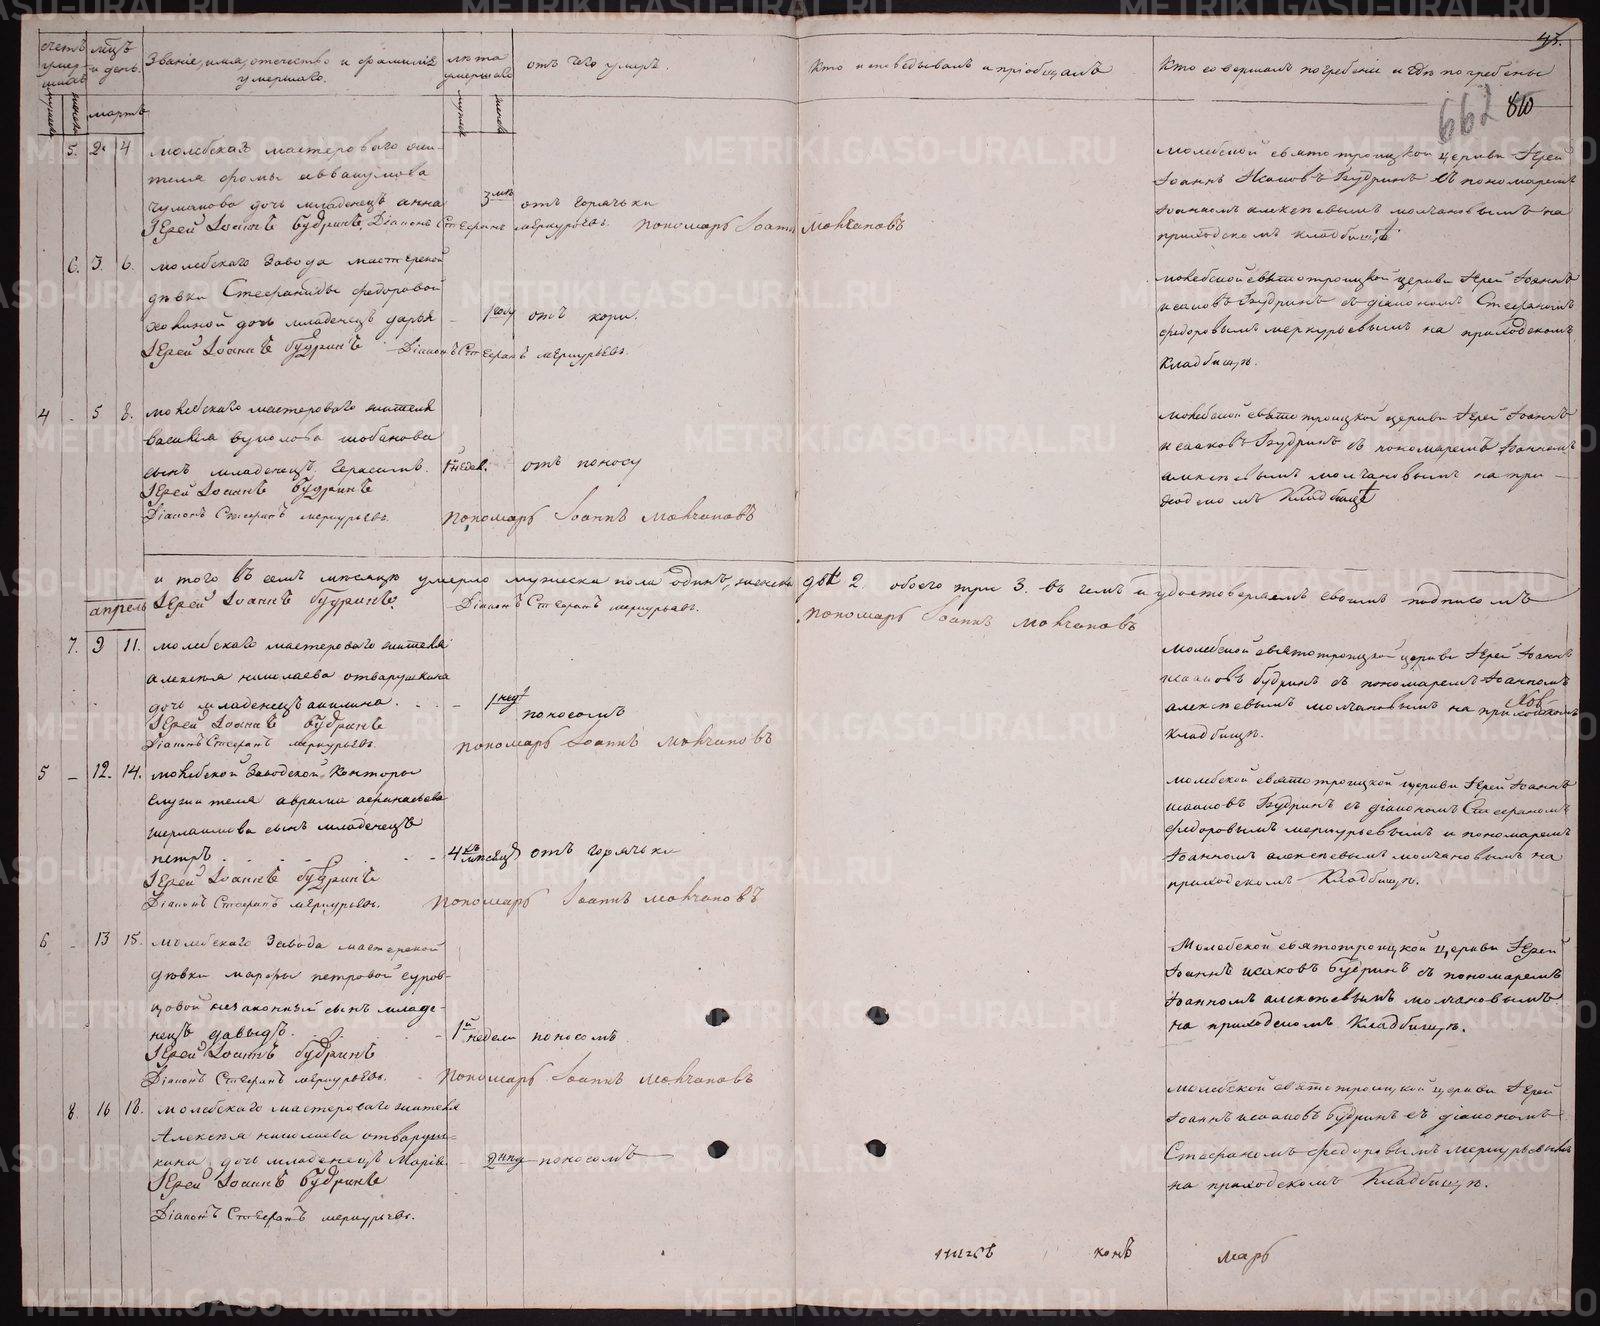 счетъ умер-шихъ
мцъ и день.
Званіе, имя, отечество и фамилія умершаго.
лѣта умершаго
отъ чего умеръ.
Кто исповѣдывалъ и пріобщалъ
Кто совершалъ погребеніе и гдѣ погребены
43.
662 810
мартъ
5. 2. 4 молебскаго мастероваго жи-
теля фомы аввакумова
чуманова дочь младенецъ анна 3 мѣ отъ горячьки
Іерей Іоаннъ Будринъ, Діаконъ Стефанъ меркурьевъ. пономарь Іоаннъ Молчановъ
молебской святотроицкой церкви Іерей
Іоаннъ Исаковъ Будринъ съ пономаремъ
Іоанномъ алексѣевымъ молчановымъ на
приходскомъ кладбищѣ
6. 3. 6. молебскаго Завода мастерской
дѣвки Стефаниды федоровой
дочь младенецъ дарья 1 году отъ кори.
Іерей Іоаннъ Будринъ Діаконъ Стефанъ меркурьевъ.
молебской святотроицкой церкви Іерей Іоаннъ
исаковъ Будринъ съ діакономъ Стефаномъ
федоровымъ меркурьевымъ на приходскомъ
Кладбищѣ.
4 - 5 8. молебскаго мастероваго жителя
василія вуколова шобанова
сынъ младенецъ Герасимъ. 1 недел. отъ поносу
Іерей Іоаннъ Будринъ
Діаконъ Стефанъ меркурьевъ. пономарь Іоаннъ Молчановъ
молебской святотроицкой церкви Іерей Іоаннъ
исааковъ Будринъ съ пономаремъ Іоанномъ
алексѣевымъ молчановымъ на при-
ходскомъ Кладбищѣ
и того въ семъ мѣсяцѣ умерло мужеска пола одинъ, женска двѣ 2. обоего три 3. въ чемъ и удостоверяемъ своимъ подписомъ
апрель Іерей Іоаннъ Будринъ. Діаконъ Стефанъ меркурьевъ. пономарь Іоаннъ Молчановъ
7. 9 11. молебскаго мастероваго жителя
алексѣя николаева отварухина
дочь младенецъ акилина. 1 нед. поносомъ
Іерей Іоаннъ Будринъ
Діаконъ Стефанъ меркурьевъ. пономарь Іоаннъ Молчановъ
молебской святотроицкой церкви Іерей Іоаннъ
исааковъ будринъ съ пономаремъ Іоанномъ
алексѣевымъ молчановымъ на приходскомъ
кладбищѣ.
5 - 12. 14. молебской Заводской Конторы
служителя аврама афанасьева
шермаимова сынъ младенецъ
петръ 4 мѣсяцъ отъ горячьки
Іерей Іоаннъ Будринъ
Діаконъ Стефанъ меркурьевъ. пономарь Іоаннъ Молчановъ
молебской святотроицкой церкви Іерей Іоаннъ
исааковъ Будринъ съ діакономъ Стефаномъ
федоровымъ меркурьевымъ и пономаремъ
Іоанномъ алексѣевымъ молчановымъ на
приходскомъ Кладбищѣ.
6 - 13 15. молебскаго Завода мастерской
дѣвки марфы петровой суров-
цовой незаконный сынъ младе-
нецъ давыдъ. 1 недели поносомъ
Іерей Іоаннъ Будринъ
Діаконъ Стефанъ меркурьевъ. пономарь Іоаннъ Молчановъ
Молебской святотроицкой церкви Іерей
Іоаннъ исаковъ Будринъ съ пономаремъ
Іоанномъ алексѣевымъ молчановымъ
на приходскомъ Кладбищѣ.
8. 16 18. молебскаго мастероваго жителя
Алексѣя николаева отвару-
хина дочь младенецъ Марія. 2 нед поносомъ
Іерей Іоаннъ Будринъ
Діаконъ Стефанъ меркурьевъ.
молебской святотроицкой церкви Іерей
Іоаннъ исааковъ Будринъ съ діакономъ
Стефаномъ федоровымъ меркурьевымъ
на приходскомъ Кладбищѣ.
марь
METRIKI.GASO-URAL.RU